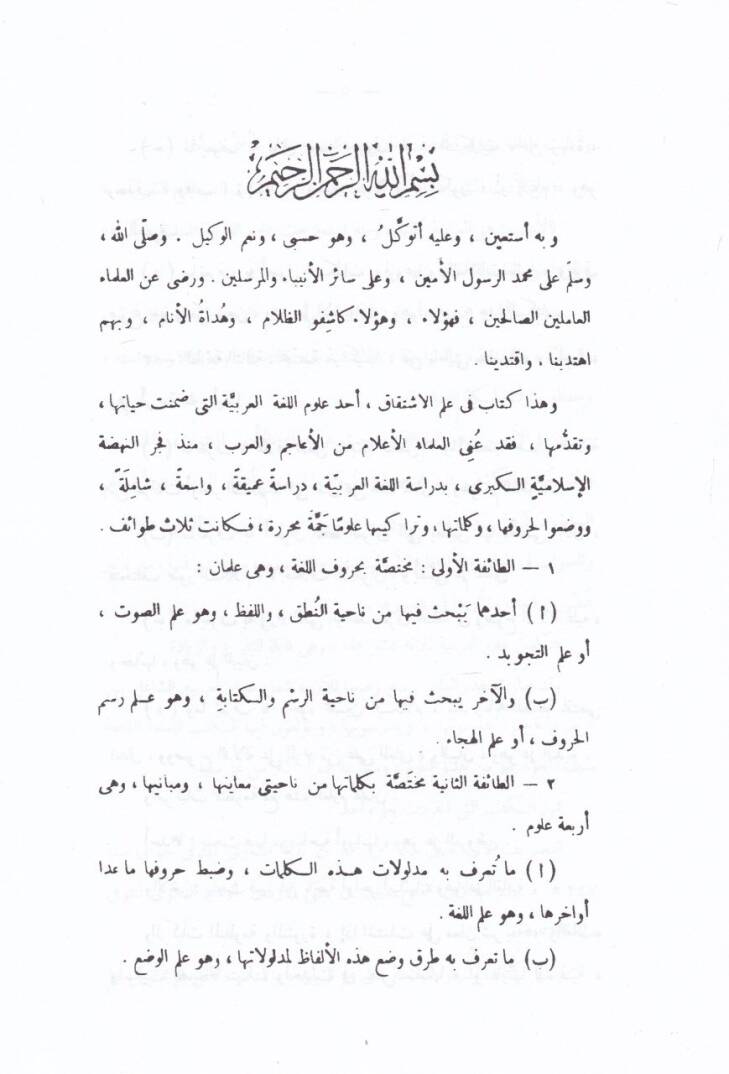 بِسْمِ اللهِ الرَّحْمٰنِ الرَّحِيمِ
وبه أستعين ، وعليه أتوكَّلُ ، وهو حسبى ، ونعم الوكيل . وصلّى الله ،
وسلّم على محمد الرسول الأمين ، وعلى سائر الأنبياء والمرسلين . ورضى عن العلماء
العاملين الصالحين ، فهؤلاء ، وهؤلاء كاشِفو الظلام ، وهُداةُ الأنام ، وبهم
اهتدينا ، واقتدينا .
وهذا كتاب فى علم الاشتقاق ، أحد علوم اللغة العربيَّة التى ضمنت حياتها ،
وتقدُّمها ، فقد عُنِى العلماء الأعلام من الأعاجم والعرب ، منذ فجر النهضة
الإسلاميَّة الكبرى ، بدراسة اللغة العربيّة ، دراسةً عميقةً ، واسعةً ، شاملَةً ،
ووضعوا لحروفها ، وكلماتها ، وتراكيبها علومًا جَمَّة محررة ، فكانت ثلاث طوائف .
١ — الطائفة الأولى : مختصَّة بحروف اللغة ، وهى علمان :
(ا) أحدهما يَبْحث فيها من ناحية النُطق ، واللفظ ، وهو علم الصوت ،
أو علم التجويد .
(ب) والآخر يبحث فيها من ناحية الرسْم والكتابةِ ، وهو علم رسم
الحروف ، أو علم الهجاء .
٢ — الطائفة الثانية مختَصَّة بكلماتها من ناحيتى معاينها ، ومبانيها ، وهى
أربعة علوم .
(ا) ما تُعرف به مدلولات هذه الكلمات ، وضبط حروفها ما عدا
أواخرها ، وهو علم اللغة .
(ب) ما تعرف به طرق وضع هذه الألفاظ لمدلولاتها ، وهو علم الوضع .